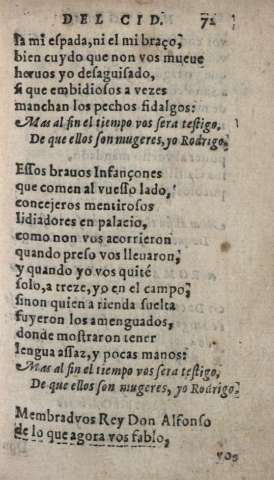 DEL CID. 72
la mi espada, ni el mi braço,
bien cuydo que non vos mueue
heruos yo desaguisado,
si que embidiosos a vezes
manchan los pechos fidalgos:
Mas al fin el tiempo vos sera testigo,
De que ellos son mugeres, yo Rodrigo.
Essos brauos Infançones
que comen al vuesso lado,
concejeros mentirosos
lidiadores en palacio,
como non vos acorrieron
quando preso vos lleuaron,
y quando yo vos quité
solo, a treze, yo en el campo,
sinon quien a rienda suelta
fuyeron los amenguados,
donde mostraron tener
lengua assaz, y pocas manos:
Mas al fin el tiempo vos sera testigo,
De que ellos son mugeres, yo Rodrigo.
Membradvos Rey Don Alfonso
de lo que agora vos fablo,
vos